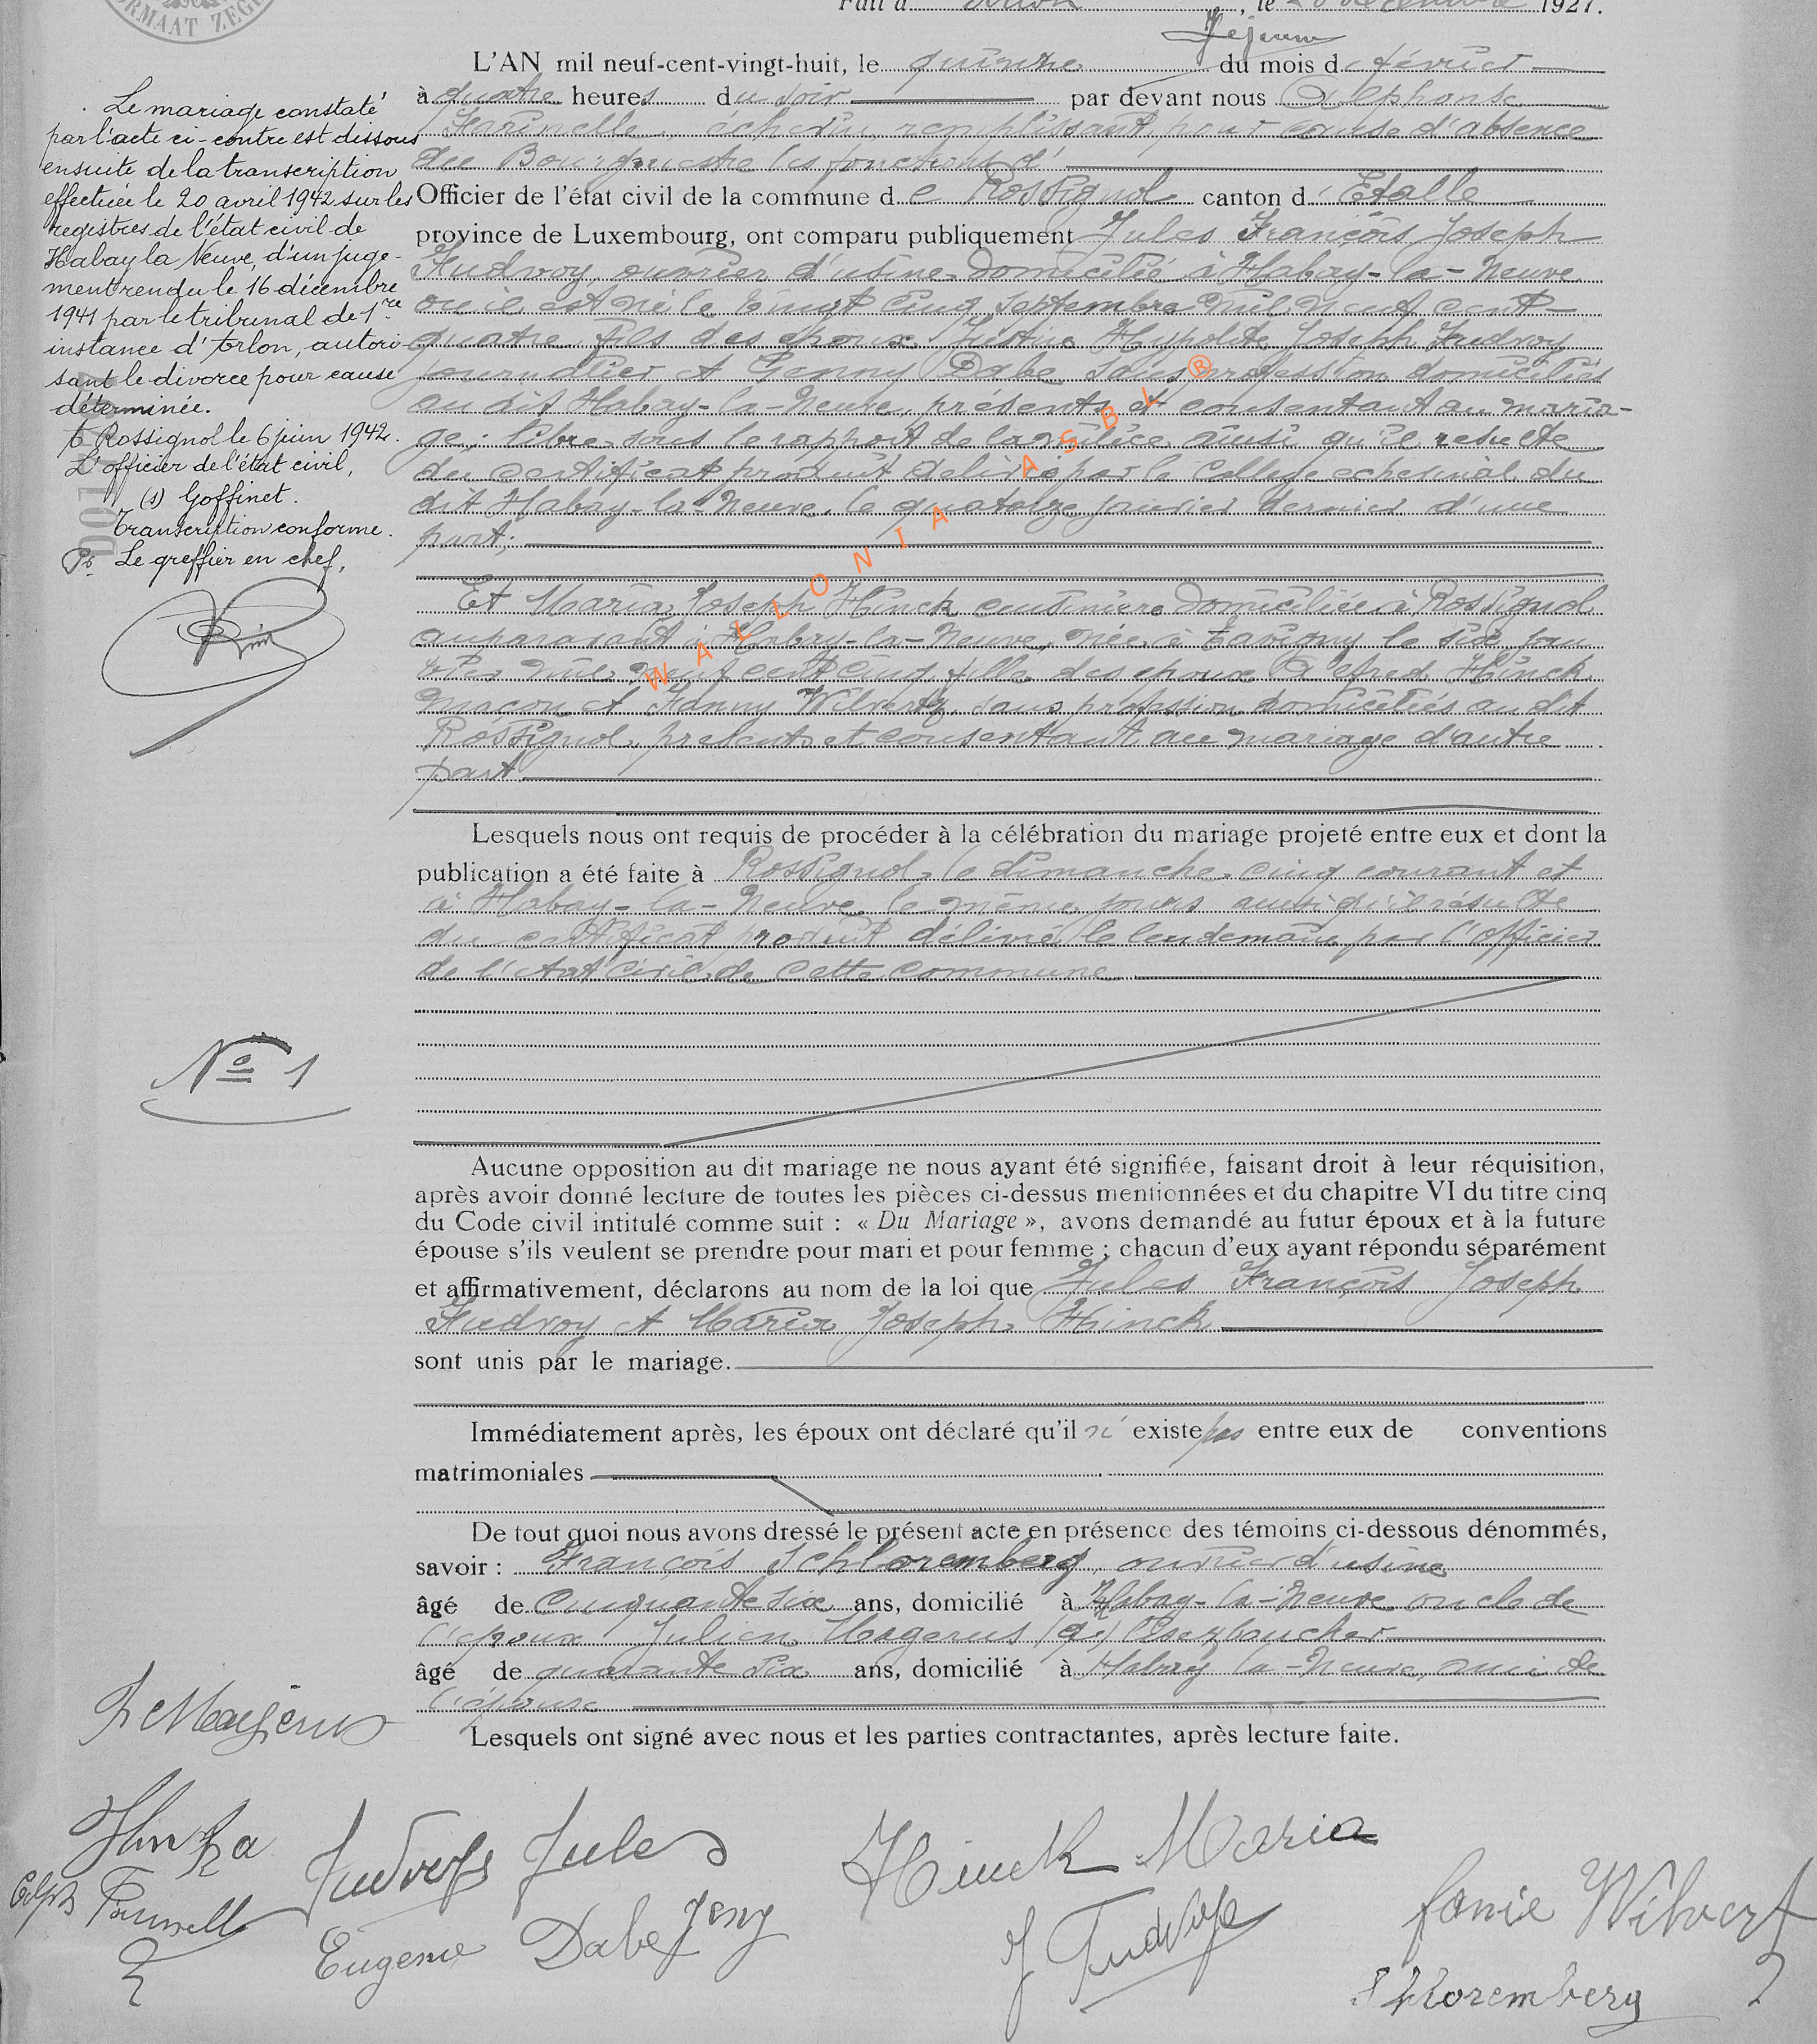 FORMAAT ZEGEL
Fait à Arlon, le 20 décembre 1927.
Lejeune
L'AN mil neuf-cent-vingt-huit, le quinze du mois de février
à quatre heures du soir par devant nous Alphonse
échevin remplissant pour cause d'absence
du Bourgmestre les fonctions d'
Officier de l'état civil de la commune de Rossignol canton d'Etalle
province de Luxembourg, ont comparu publiquement Jules François Joseph
Fudvoy, ouvrier d'usine, domicilié à Habay-la-Neuve
où il est né le vingt cinq septembre mil neuf cent
quatre, fils des époux Justin Hypolite Joseph Fudvoy
journalier et Genny Dabe sans profession domiciliés
au dit Habay-la-Neuve, présents et consentant au maria-
ge; libre sous le rapport de la milice ainsi qu'il resulte
du certificat produit délivré par le College echevinal du
dit Habay-la-Neuve, le quatorze janvier dernier d'une
part;
Et Maria Joseph Hinck cuisinière domiciliée à Rossignol
auparavant à Habay-la-Neuve, née à Tavigny le six jan
vier mil neuf cent cinq, fille des époux Alfred Hinck
maçon et Fanny Wilvertz, sans profession domiciliés au dit
Rossignol, présents et consentant au mariage d'autre
part
Lesquels nous ont requis de procéder à la célébration du mariage projeté entre eux et dont la
publication a été faite à Rossignol, le dimanche cinq courant et
à Habay-la-Neuve le même jour ainsi qu'il résulte
du certificat produit délivré le lendemain par l'officier
de l'état civil de cette commune
Aucune opposition au dit mariage ne nous ayant été signifiée, faisant droit à leur réquisition,
après avoir donné lecture de toutes les pièces ci-dessus mentionnées et du chapitre VI du titre cinq
du Code civil intitulé comme suit : « Du Mariage », avons demandé au futur époux et à la future
épouse s'ils veulent se prendre pour mari et pour femme ; chacun d'eux ayant répondu séparément
et affirmativement, déclarons au nom de la loi que Jules François Joseph
Fudvoy et Maria Joseph Hinck
sont unis par le mariage.
Immédiatement après, les époux ont déclaré qu'il n'existe pas entre eux de conventions
matrimoniales
De tout quoi nous avons dressé le présent acte en présence des témoins ci-dessous dénommés,
savoir : François Schloremberg, ouvrier d'usine
âgé de cinquante six ans, domicilié à Habay-la-Neuve oncle de
l'époux Julien Magerus boucher
âgé de quarante six ans, domicilié à Habay-la-Neuve, ami de
l'épouse
Lesquels ont signé avec nous et les parties contractantes, après lecture faite.
Le mariage constaté
par l'acte ci-contre est dissous
ensuite de la transcription
effectuée le 20 avril 1942 sur les
registres de l'état civil de
Habay la Neuve, d'un juge-
ment rendu le 16 décembre
1941 par le tribunal de 1re
instance d'Arlon, autori-
sant le divorce pour cause
déterminée.
à Rossignol le 6 juin 1942.
L'officier de l'état civil,
(s) Goffinet.
Transcription conforme.
Pr. Le greffier en chef,
No 1
WALLONIA ASBL ®
Magerus
Hinck a
Fudvoye Jules
Hinck Maria
Fanie Wilvert
Eugenie Dabe Jeny
J Fudvoye
Schloremberg